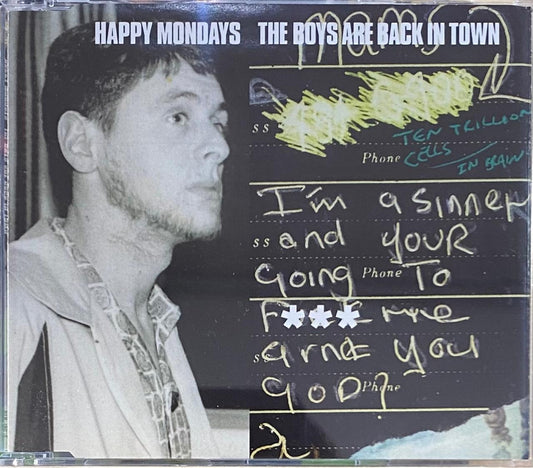 HAPPY MONDAYS THE BOYS ARE BACK IN TOWN
mams
ss
TEN TRILLION
Phone CELLS
IN BRAIN
I'm a SINNER
ss and YOUR
Going Phone TO
F***K me
s arnt you
GOD? Phone